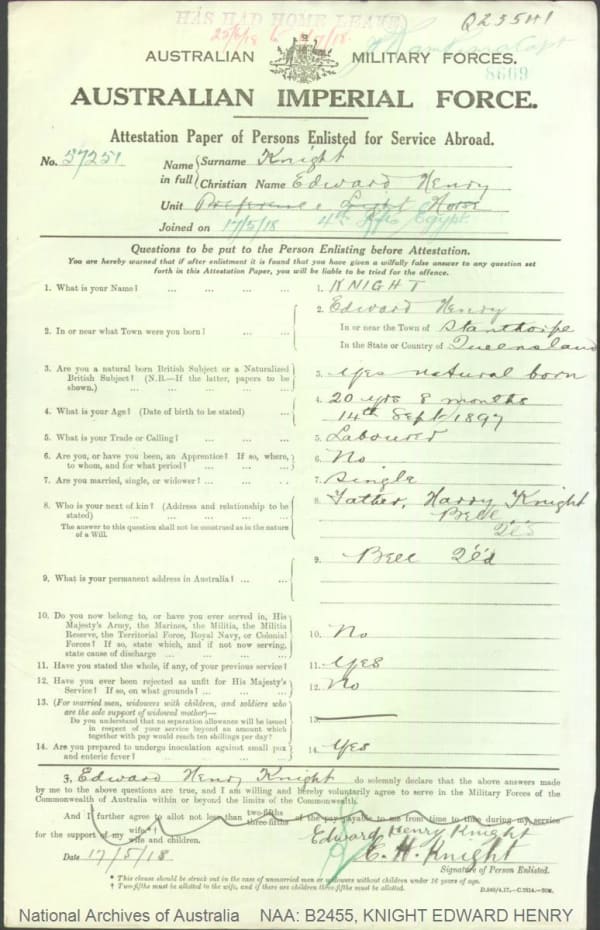 HAS HAD HOME LEAVE
Q25541
AUSTRALIAN MILITARY FORCES.
8669
AUSTRALIAN IMPERIAL FORCE.
Attestation Paper of Persons Enlisted for Service Abroad.
No. 57251 Name in full { Surname Knight
Christian Name Edward Henry
Unit Light Horse
Joined on 17/5/18 4th Rfts Egypt
Questions to be put to the Person Enlisting before Attestation.
You are hereby warned that if after enlistment it is found that you have given a wilfully false answer to any question set
forth in this Attestation Paper, you will be liable to be tried for the offence.
1. What is your Name? ... 1. KNIGHT
2. Edward Henry
2. In or near what Town were you born? ... In or near the Town of Stanthorpe
In the State or Country of Queensland
3. Are you a natural born British Subject or a Naturalized
British Subject? (N.B.—If the latter, papers to be
shown.) ... 3. Yes natural born
4. What is your Age? (Date of birth to be stated) ... 4. 20 yrs 8 months
14th Sept 1897
5. What is your Trade or Calling? ... 5. Labourer
6. Are you, or have you been, an Apprentice? If so, where,
to whom, and for what period? ... 6. No
7. Are you married, single, or widower? ... 7. Single
8. Who is your next of kin? (Address and relationship to be
stated) ... 8. Father, Harry Knight
Bell
Q'ld
The answer to this question shall not be construed as in the nature
of a Will.
9. What is your permanent address in Australia? ... 9. Bell Q'l'd
10. Do you now belong to, or have you ever served in, His
Majesty's Army, the Marines, the Militia, the Militia
Reserve, the Territorial Force, Royal Navy, or Colonial
Forces? If so, state which, and if not now serving,
state cause of discharge ... 10. No
11. Have you stated the whole, if any, of your previous service? 11. Yes
12. Have you ever been rejected as unfit for His Majesty's
Service? If so, on what grounds? ... 12. No
13. (For married men, widowers with children, and soldiers who
are the sole support of widowed mother)—
Do you understand that no separation allowance will be issued
in respect of your service beyond an amount which
together with pay would reach ten shillings per day? 13.
14. Are you prepared to undergo inoculation against small pox
and enteric fever? ... 14. Yes
I, Edward Henry Knight do solemnly declare that the above answers made
by me to the above questions are true, and I am willing and hereby voluntarily agree to serve in the Military Forces of the
Commonwealth of Australia within or beyond the limits of the Commonwealth.
And I further agree to allot not less than two-fifths three-fifths of the pay payable to me from time to time during my service
for the support of my wife*† wife and children.
Edward Henry Knight
Date 17/5/18 E. H. Knight
Signature of Person Enlisted.
* This clause should be struck out in the case of unmarried men or widowers without children under 16 years of age.
† Two-fifths must be allotted to the wife, and if there are children three-fifths must be allotted.
National Archives of Australia NAA: B2455, KNIGHT EDWARD HENRY